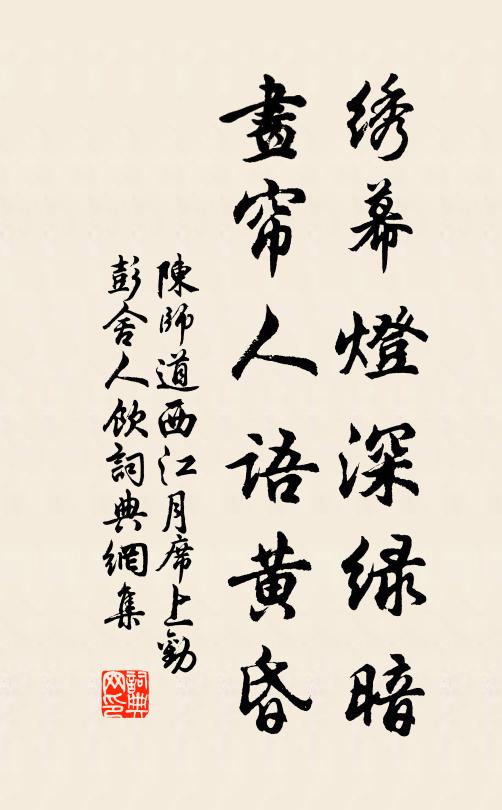 绣幕燈深绿暗
畫帘人语黄昏
陳師道西江月席上勸
彭舍人飲詞典網集
詞典网印